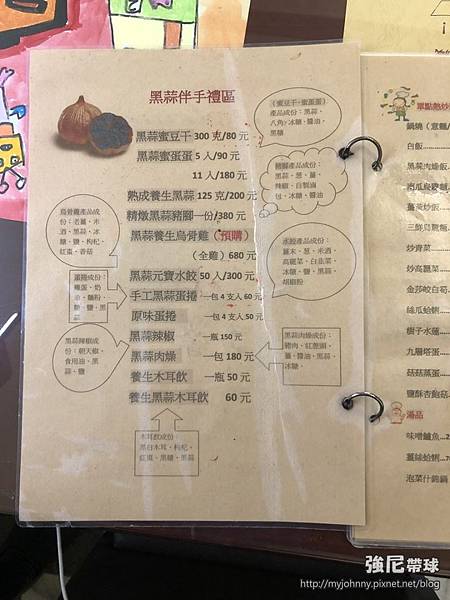 黑蒜伴手禮區
黑蒜蜜豆干 300 克/80 元
黑蒜蜜蛋蛋 5 入/90 元
11 入/180 元
熟成養生黑蒜 125 克/200 元
精燉黑蒜豬腳一份/380 元
黑蒜養生烏骨雞(預購)
(全雞) 680 元
黑蒜元寶水餃 50 入/300 元
手工黑蒜蛋捲 一包 4 支入 60 元
原味蛋捲 一包 4 支入 50 元
黑蒜辣椒 一瓶 150 元
黑蒜肉燥 一包 180 元
養生木耳飲 一瓶 50 元
養生黑蒜木耳飲 60 元
(蜜豆干、蜜蛋蛋)
產品成份：黑蒜、
八角、冰糖、醬油、
黑糖
豬腳產品成份：
黑蒜、蔥、薑、
辣椒、自製滷
包、冰糖、醬油
烏骨雞產品成
份：老薑、米
酒、黑蒜、冰
糖、鹽、枸杞、
紅棗、香菇
水餃產品成份：
薑末、蔥、米酒、
高麗菜、白韭菜、
冰糖、鹽、黑蒜、
胡椒粉
蛋捲成份：
雞蛋、奶
油、麵粉、
糖、鹽、黑
蒜
黑蒜辣椒成
份：朝天椒、
食用油、黑
蒜、鹽
黑蒜肉燥成份：
豬肉、紅蔥頭、
薑、醬油、黑蒜、
冰糖、
木耳飲成份：
黑白木耳、枸杞、
紅棗、黑糖、黑蒜
單點熱炒
鍋燒(意麵
白飯
黑蒜肉燥飯
南瓜烏
薑黃炒飯
三鮮烏
炒青菜
炒高麗菜
金莎皎白筍
絲瓜蛤蜊
樹子水蓮
九層塔蛋
菇菇蒸蛋
鹽酥杏鮑菇
湯品
味噌鱸魚
薑絲蛤蜊
泡菜什錦鍋
強尼帶球
http://myjohnny.pixnet.net/blog